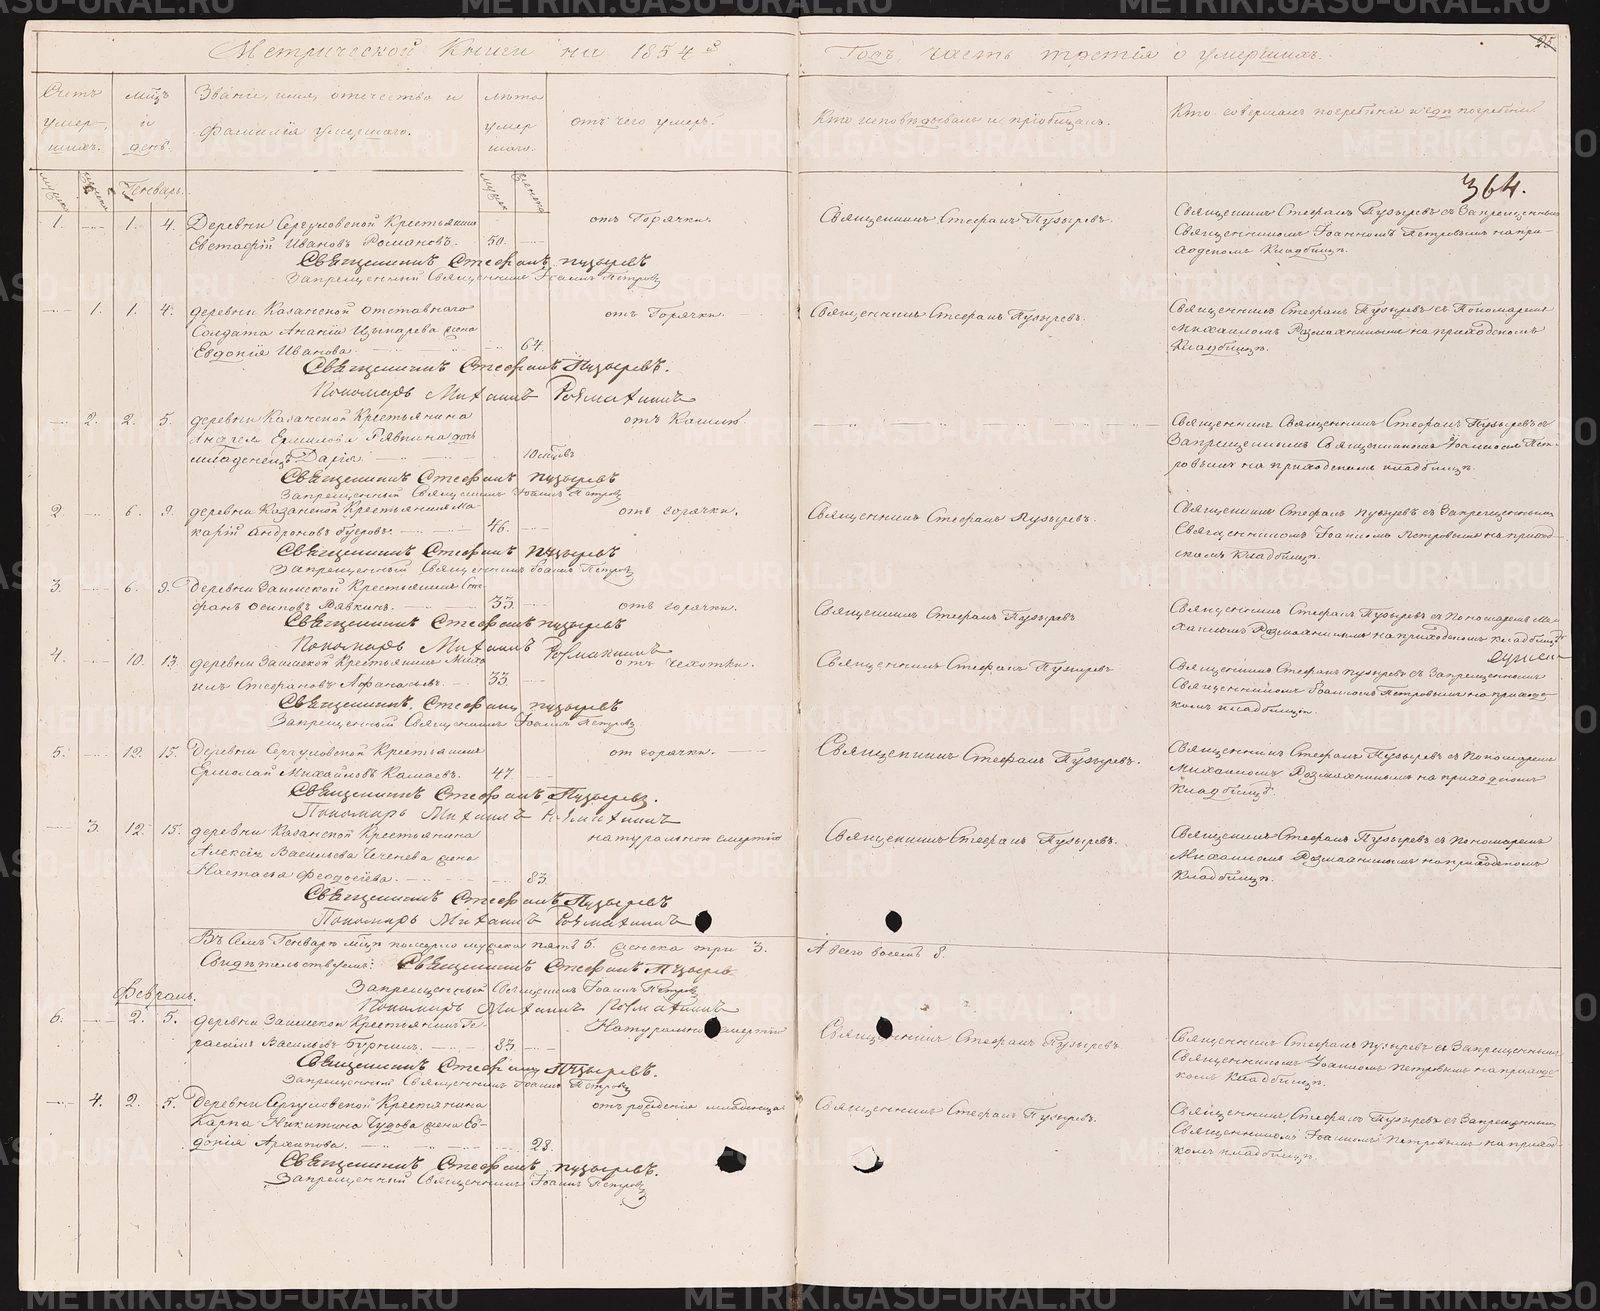 Метрической Книги на 1854й Годъ, часть третія о умершихъ.
25
Счетъ умер-шихъ.
мцъ и день.
Званіе, имя, отечество и фамилія умершаго.
лѣта умершаго.
отъ чего умеръ.
Кто исповѣдывалъ и пріобщалъ.
Кто совершалъ погребеніе и гдѣ погребены
Генварь.
364.
1. 1. 4. Деревни Сергуловской Крестьянинъ отъ Горячки. Священникъ Стефанъ Пузыревъ. Священникъ Стефанъ Пузыревъ съ Запрещеннымъ
Евстафій Ивановъ Романовъ. 50. Священникомъ Іоанномъ Петровымъ на при-
ходскомъ Кладбищѣ.
Священникъ Стефанъ Пузыревъ
Запрещенный Священникъ Іоаннъ Петровъ
1. 1. 4. деревни Казанской отставнаго отъ Горячки. Священникъ Стефанъ Пузыревъ. Священникъ Стефанъ Пузыревъ съ Пономаремъ
Солдата Ананіи Цыпарева жена Михаиломъ Размахнинымъ на приходскомъ
Евдокія Иванова 64. Кладбищѣ.
Священникъ Стефанъ Пузыревъ.
Пономарь Михаилъ Размахнинъ
2. 2. 5. деревни Казанской Крестьянина отъ Кашлю. Священникъ Стефанъ Пузыревъ съ
Ермилова Рявкина дочь Запрещеннымъ Священникомъ Іоанномъ Пет-
младенецъ Дарія 10 мцовъ ровымъ на приходскомъ кладбищѣ.
Священникъ Стефанъ Пузыревъ
Запрещенный Священникъ Іоаннъ Петровъ
2. 6. 9. деревни Казанской Крестьянинъ Ма- отъ горячки. Священникъ Стефанъ Пузыревъ. Священникъ Стефанъ Пузыревъ съ Запрещеннымъ
карій Андроновъ 46. Священникомъ Іоанномъ Петровымъ на приход-
скомъ Кладбищѣ.
Священникъ Стефанъ Пузыревъ
Запрещенный Священникъ Іоаннъ Петровъ
3. 6. 9. Деревни Заимской Крестьянинъ Сте- отъ горячки. Священникъ Стефанъ Пузыревъ Священникъ Стефанъ Пузыревъ съ Пономаремъ Ми-
фанъ Осиповъ Рявкинъ. 33. хаиломъ Размахнинымъ на приходскомъ кладбищѣ
Священникъ Стефанъ Пузыревъ
Пономарь Михаилъ Размахнинъ
4. 10. 13. деревни Заимской Крестьянинъ Миха- отъ чехотки. Священникъ Стефанъ Пузыревъ Священникъ Стефанъ Пузыревъ съ Запрещеннымъ
илъ Стефановъ Афанасьевъ. 33. Священникомъ Іоанномъ Петровымъ на приходс-
комъ кладбищѣ.
Священникъ Стефанъ Пузыревъ
Запрещенный Священникъ Іоаннъ Петровъ
5. 12. 15. Деревни Сергуловской Крестьянинъ от горячки. Священникъ Стефанъ Пузыревъ. Священникъ Стефанъ Пузыревъ съ Пономаремъ
Ермолай Михайловъ Камаевъ. 47. Михаиломъ Размахнинымъ на приходскомъ
Кладбищѣ.
Священникъ Стефанъ Пузыревъ.
Пономарь Михаилъ Размахнинъ
3. 12. 15. деревни Казанской Крестьянина натуральною смертію Священникъ Стефанъ Пузыревъ. Священникъ Стефанъ Пузыревъ съ Пономаремъ
Алексѣя Васильева Чеченева жена Михаиломъ Размахнинымъ на приходскомъ
Настасья Феодосіева. 83. Кладбищѣ.
Священникъ Стефанъ Пузыревъ
Пономарь Михаилъ Размахнинъ
Въ Семъ Генварѣ мцѣ померло мужска пять 5. женска три 3. А всего восемь 8.
Свидѣтельствуемъ: Священникъ Стефанъ Пузыревъ
Запрещенный Священникъ Іоаннъ Петровъ
Пономарь Михаилъ Размахнинъ
Февраль.
6. 2. 5. деревни Заимской Крестьянинъ Ге- Натуральною смертію Священникъ Стефанъ Пузыревъ Священникъ Стефанъ Пузыревъ съ Запрещеннымъ
расимъ Васильевъ 83. Священникомъ Іоанномъ Петровымъ на приходс-
комъ Кладбищѣ.
Священникъ Стефанъ Пузыревъ.
Запрещенный Священникъ Іоаннъ Петровъ
4. 2. 5. Деревни Сергуловской Крестьянина отъ рожденія младенца Священникъ Стефанъ Пузыревъ. Священникъ Стефанъ Пузыревъ съ Запрещеннымъ
Карпа Никитина Чудова жена Ев- Священникомъ Іоанномъ Петровымъ на приход-
докія Архипова. 28. комъ кладбищѣ.
Священникъ Стефанъ Пузыревъ.
Запрещенный Священникъ Іоаннъ Петровъ
METRIKI.GASO-URAL.RU